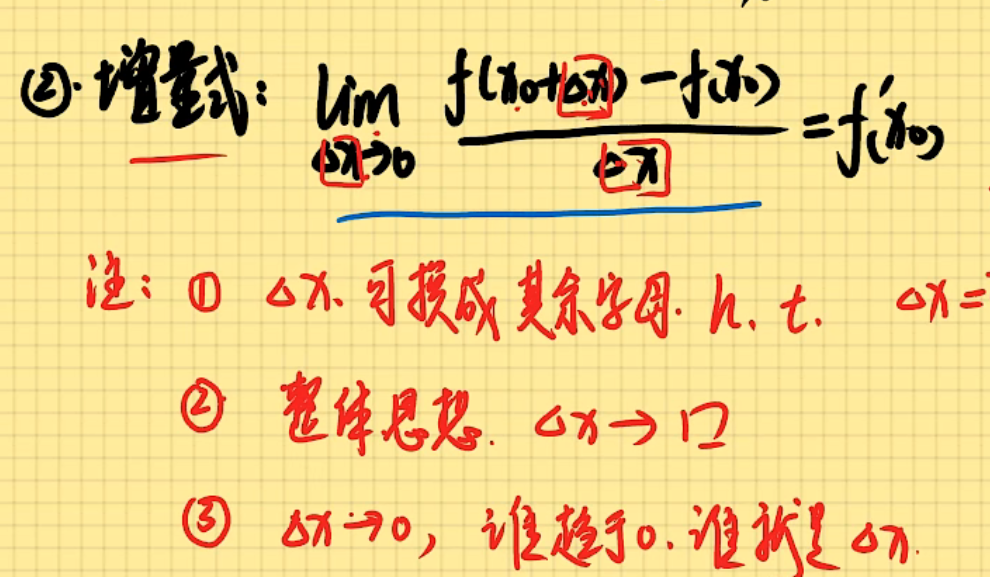 ②. 增量式: lim Δx→0 f(x₀+Δx)-f(x₀) / Δx = f'(x₀)
注: ① Δx. 可换成其余字母. h. t. Δx=
② 整体思想. Δx→口
③ Δx→0, 谁趋于0. 谁就是Δx.